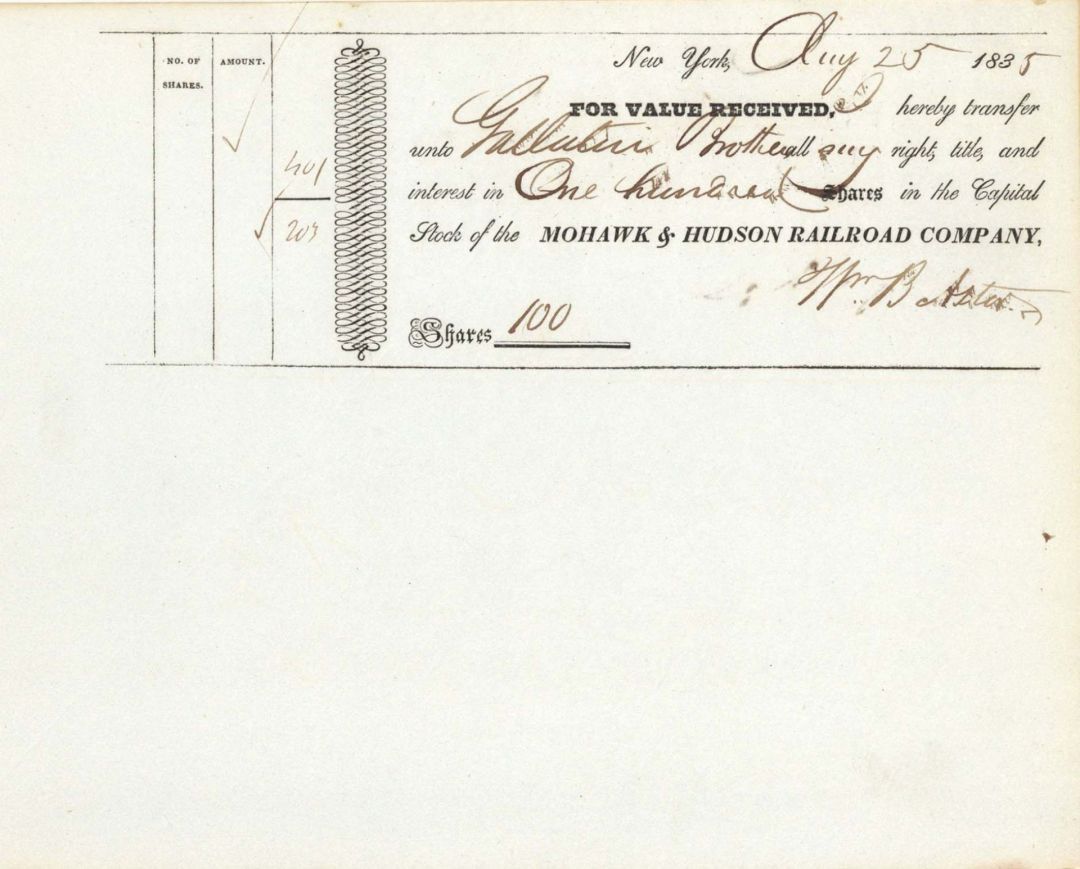 NO. OF SHARES.
AMOUNT.
401
203
New York, Aug 25 1835
FOR VALUE RECEIVED, I hereby transfer
unto Gallatin Brothers all my right, title, and
interest in One hundred Shares in the Capital
Stock of the MOHAWK & HUDSON RAILROAD COMPANY,
Wm B Astor
Shares 100